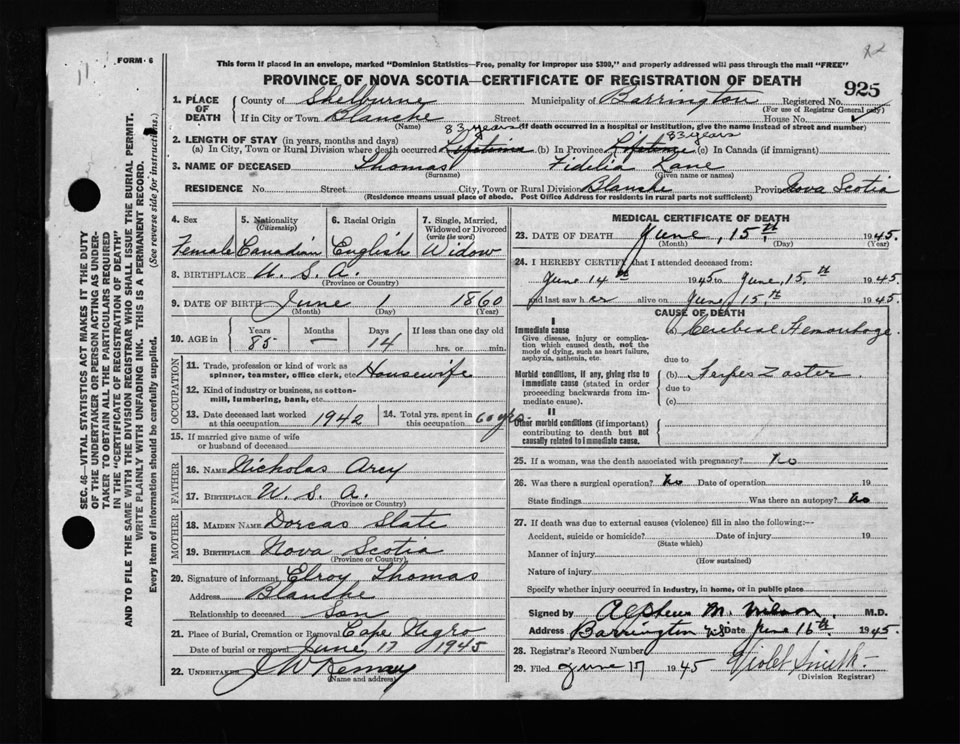 FORM - 6
This form if placed in an envelope, marked "Dominion Statistics—Free, penalty for improper use $300," and properly addressed will pass through the mail "FREE"
PROVINCE OF NOVA SCOTIA—CERTIFICATE OF REGISTRATION OF DEATH
925
1. PLACE OF DEATH
County of Shelburne Municipality of Barrington Registered No.
(For use of Registrar General only)
If in City or Town Blanche Street House No.
(Name) (If death occurred in a hospital or institution, give the name instead of street and number)
83 years 83 years
2. LENGTH OF STAY (in years, months and days)
(a) In City, Town or Rural Division where death occurred Lifetime (b) In Province Lifetime (c) In Canada (if immigrant)
3. NAME OF DECEASED Thomas Fidelia Lane
(Surname) (Given name or names)
RESIDENCE No. Street City, Town or Rural Division Blanche Province Nova Scotia
(Residence means usual place of abode. Post Office Address for residents in rural parts not sufficient)
4. Sex 5. Nationality (Citizenship) 6. Racial Origin 7. Single, Married, Widowed or Divorced (write the word)
Female Canadian English Widow
8. BIRTHPLACE U. S. A.
(Province or Country)
9. DATE OF BIRTH June 1 1860
(Month) (Day) (Year)
10. AGE in Years Months Days If less than one day old
85 — 14 hrs. or min.
OCCUPATION
11. Trade, profession or kind of work as spinner, teamster, office clerk, etc. Housewife
12. Kind of industry or business, as cotton-mill, lumbering, bank, etc.
13. Date deceased last worked at this occupation 1942
14. Total yrs. spent in this occupation 60 yrs.
15. If married give name of wife or husband of deceased
FATHER
16. NAME Nicholas Arey
17. BIRTHPLACE U. S. A.
(Province or Country)
MOTHER
18. MAIDEN NAME Dorcas Slate
19. BIRTHPLACE Nova Scotia
(Province or Country)
20. Signature of informant Elroy Thomas
Address Blanche
Relationship to deceased Son
21. Place of Burial, Cremation or Removal Cape Negro
Date of burial or removal June 17 1945
22. UNDERTAKER J W Kenney
(Name and address)
MEDICAL CERTIFICATE OF DEATH
23. DATE OF DEATH June, 15th 1945.
(Month) (Day) (Year)
24. I HEREBY CERTIFY that I attended deceased from:
June 14th 1945 to June, 15th 1945
and last saw her alive on June 15th 1945.
CAUSE OF DEATH
I
Immediate cause
Give disease, injury or complication which caused death, not the mode of dying, such as heart failure, asphyxia, asthenia, etc.
(a) Cerebral Hemorrhage
due to
Morbid conditions, if any, giving rise to immediate cause (stated in order proceeding backwards from immediate cause).
(b) Herpes Zoster
due to
(c)
II
Other morbid conditions (if important) contributing to death but not causally related to immediate cause.
25. If a woman, was the death associated with pregnancy? No
26. Was there a surgical operation? No Date of operation 19
State findings Was there an autopsy? No
27. If death was due to external causes (violence) fill in also the following:--
Accident, suicide or homicide? Date of injury 19
(State which)
Manner of injury
(How sustained)
Nature of injury
Specify whether injury occurred in industry, in home, or in public place
Signed by Alpheus M. Wilson M.D.
Address Barrington N.S. Date June 16th 1945.
28. Registrar's Record Number
29. Filed June 17 1945 Violet Smith
(Division Registrar)
SEC. 46—VITAL STATISTICS ACT MAKES IT THE DUTY
OF THE UNDERTAKER OR PERSON ACTING AS UNDER-
TAKER TO OBTAIN ALL THE PARTICULARS REQUIRED
IN THE "CERTIFICATE OF REGISTRATION OF DEATH"
AND TO FILE THE SAME WITH THE DIVISION REGISTRAR WHO SHALL ISSUE THE BURIAL PERMIT.
WRITE PLAINLY WITH UNFADING INK. THIS IS A PERMANENT RECORD.
Every item of information should be carefully supplied. (See reverse side for instructions.)